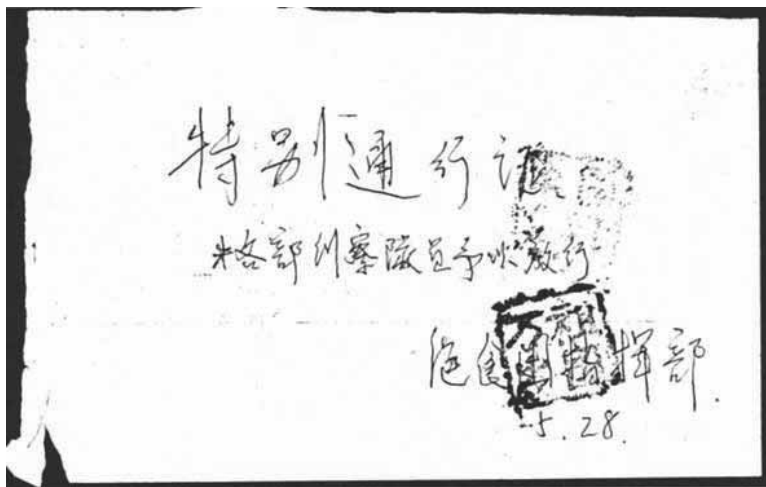 特别通行证
各部纠察隊员予以放行
绝食团指挥部.
5.28.